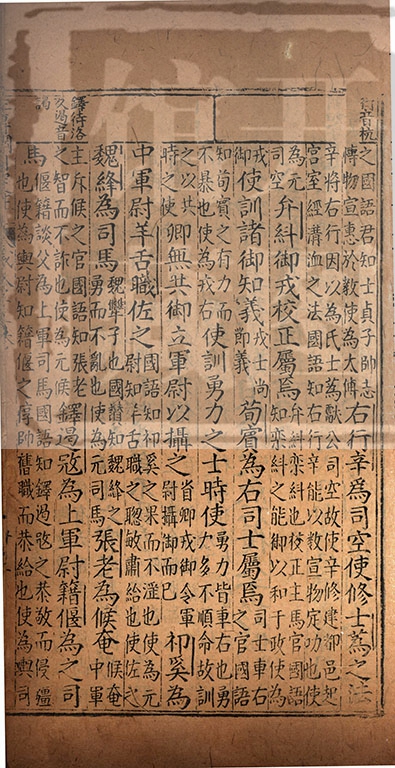 行音杭
之國語君知士貞子帥志
博物宣惠於教使為大傅
右行辛爲司空使修士蒍之法
辛將右行因以為氏士蒍獻公司空故使辛修建都邑起
宮室經溝洫之法國語知右行辛能以數宣物定功也使
為元
司空
弁糾御戎校正屬焉
弁糾欒糾也校正主馬官國語
知欒糾之能御以和于政使為
戎
御
使訓諸御知義
戎士尚
節義
荀賓為右司士屬焉
司士車右
之官國語
知荀賓之有力而
不暴也使為戎右
使訓勇力之士時使
勇力皆車右也勇
力多不順命故訓
之以共
時之使
卿無共御立軍尉以攝之
省卿戎御令軍
尉攝御而已
祁奚為
中軍尉羊舌職佐之
國語知祁奚之果而不淫也使為元
尉知羊舌職之聰敏肅給也使佐之
魏絳為司馬
魏犫子也國語知魏絳之
勇而不亂也使為元司馬
張老為候奄
候奄
中軍
鐸待洛
又遏音
謁
主斥候之官國語知張老
之智而不詐也使為元候
鐸遏寇為上軍尉籍偃為之司
馬
偃籍談父為上軍司馬國語知鐸遏寇之恭敬而信彊
也使為輿尉知籍偃之惇帥舊職而恭給也使為輿司